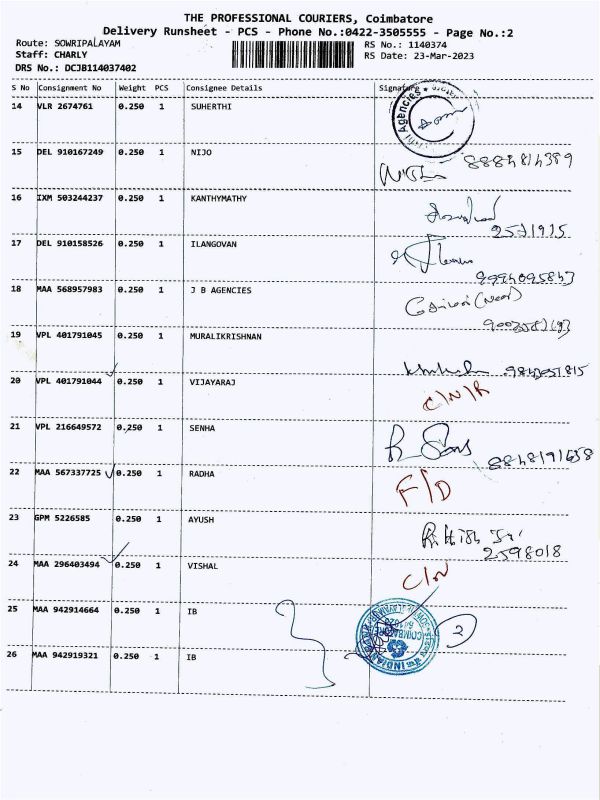 THE PROFESSIONAL COURIERS, Coimbatore
Delivery Runsheet - PCS - Phone No.:0422-3505555 - Page No.:2
Route: SOWRIPALAYAM
RS No.: 1140374
Staff: CHARLY
RS Date: 23-Mar-2023
DRS No.: DCJB114037402
S No Consignment No Weight PCS Consignee Details Signature
14 VLR 2674761 0.250 1 SUHERTHI
Agencies
15 DEL 910167249 0.250 1 NIJO
16 IXM 503244237 0.250 1 KANTHYMATHY
2571915
17 DEL 910158526 0.250 1 ILANGOVAN
18 MAA 568957983 0.250 1 J B AGENCIES
19 VPL 401791045 0.250 1 MURALIKRISHNAN
20 VPL 401791044 0.250 1 VIJAYARAJ
C/N/R
21 VPL 216649572 0.250 1 SENHA
22 MAA 567337725 0.250 1 RADHA
F/D
23 GPM 5226585 0.250 1 AYUSH
2598018
24 MAA 296403494 0.250 1 VISHAL
C/N
25 MAA 942914664 0.250 1 IB
INDIAN
COIMBATORE
2
26 MAA 942919321 0.250 1 IB